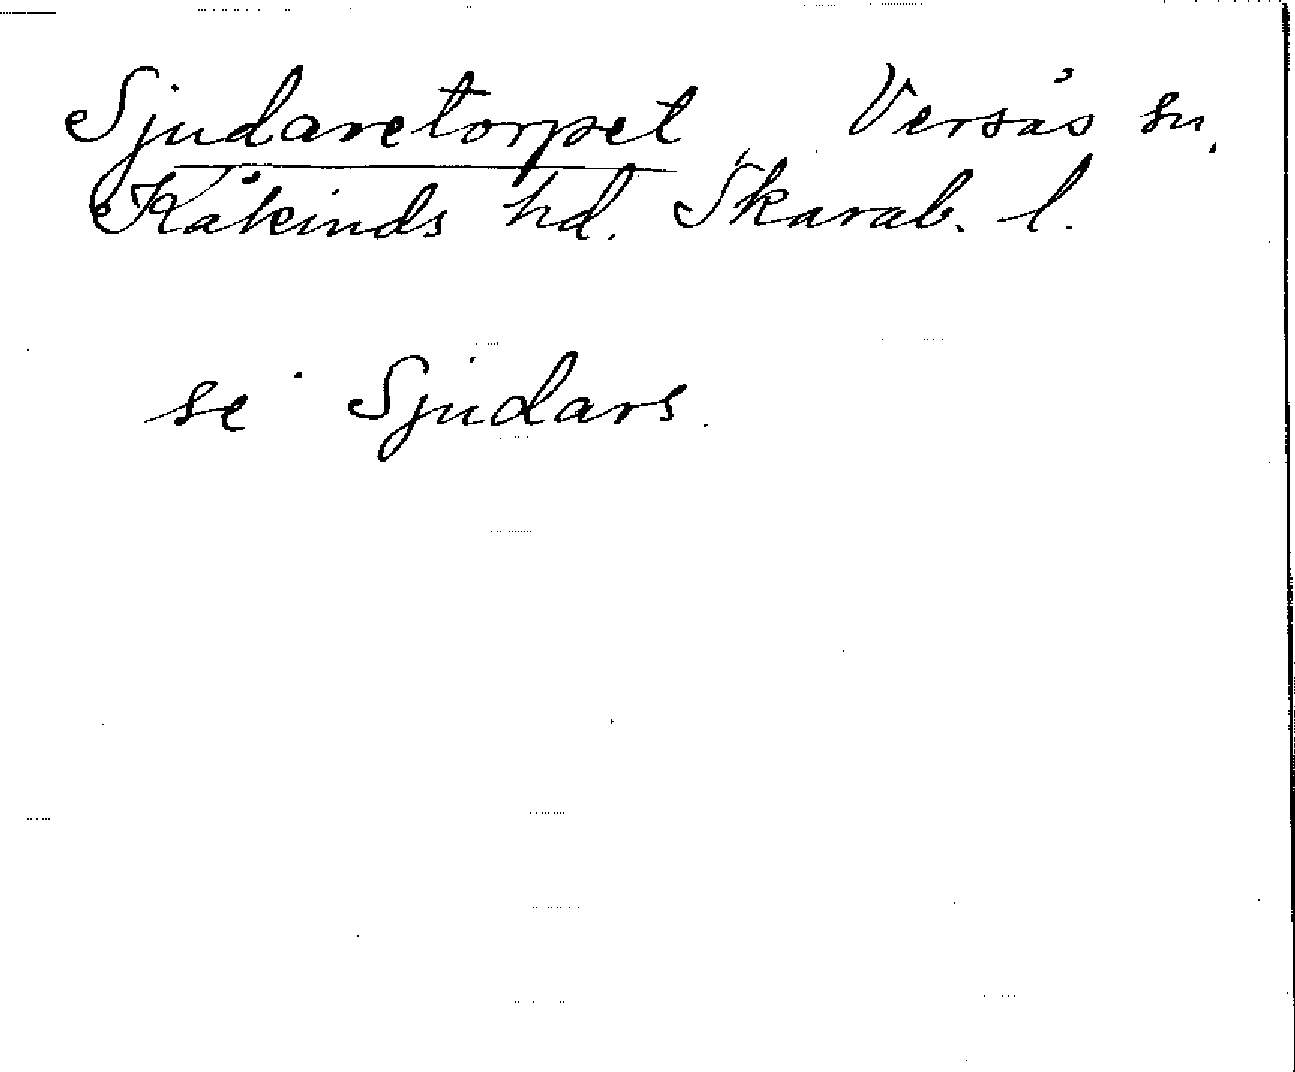 Sjudaretorpet Versås sn,
Kåkinds hd. Skarab. l.
se Sjudars.